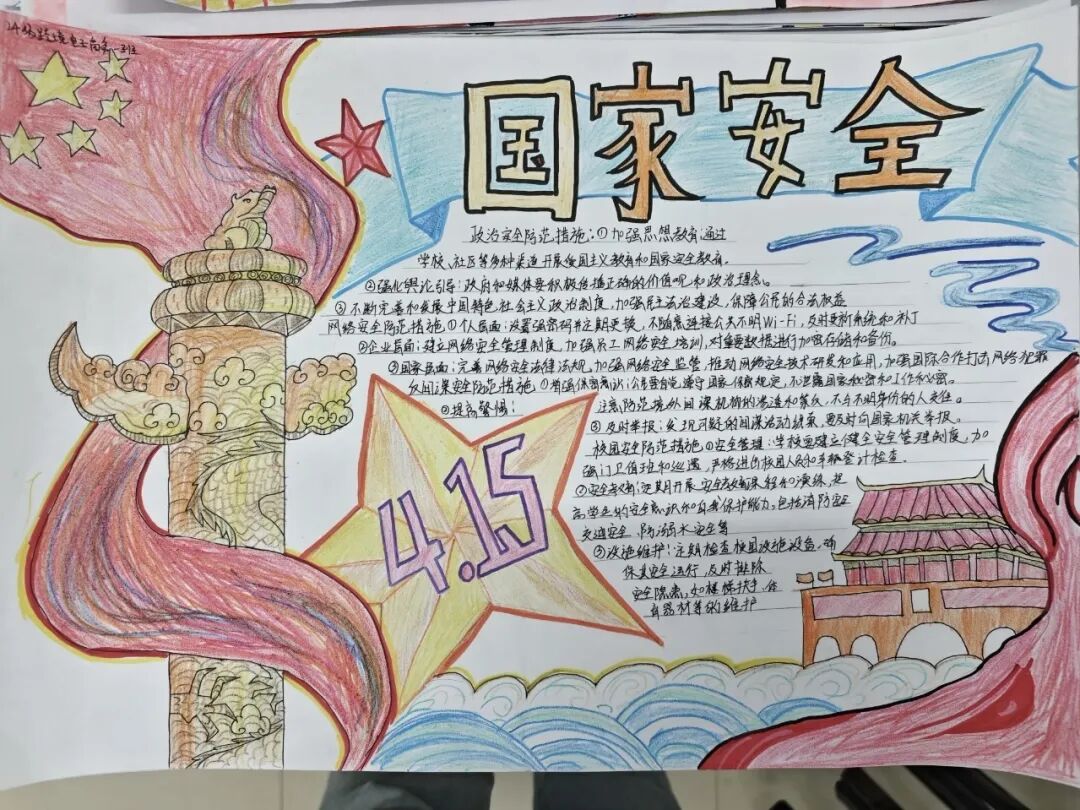 24级跨境电子商务一班
国家安全
政治安全防范措施:①加强思想教育通过
学校、社区等多种渠道开展爱国主义教育和国家安全教育。
②强化舆论引导:政府和媒体要积极传播正确的价值观和政治理念。
③不断完善和发展中国特色社会主义政治制度,加强民主法治建设,保障公民的合法权益
网络安全防范措施①个人层面:设置强密码并定期更换,不随意连接公共不明Wi-Fi,及时更新系统和补丁
②企业层面:建立网络安全管理制度,加强员工网络安全培训,对重要数据进行加密存储和备份。
③国家层面:完善网络安全法律法规,加强网络安全监管,推动网络安全技术研发和应用,加强国际合作打击网络犯罪
反间谍安全防范措施①增强保密意识:公民要自觉遵守国家保密规定,不泄露国家秘密和工作秘密。
②提高警惕:
注意防范境外间谍机构的渗透和策反,不与不明身份的人交往。
③及时举报:发现可疑的间谍活动线索,要及时向国家机关举报。
校园安全防范措施①安全管理:学校要建立健全安全管理制度,加
强门卫值班和巡逻,严格进行校园人员和车辆登记检查.
②安全教育:定期开展安全教育课程和演练,提
高学生的安全意识和自我保护能力,包括消防安全
交通安全、防溺水安全等
③设施维护:定期检查校园设施设备,确
保其安全运行,及时排除
安全隐患,如楼梯扶手、体
育器材等的维护
4.15